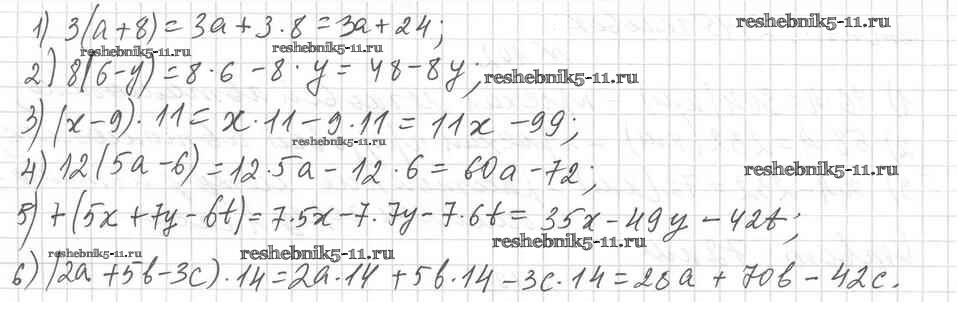 1) 3(a+8) = 3a + 3·8 = 3a + 24; reshebnik5-11.ru
reshebnik5-11.ru reshebnik5-11.ru
2) 8(6-y) = 8·6 - 8·y = 48 - 8y; reshebnik5-11.ru
3) (x-9)·11 = x·11 - 9·11 = 11x - 99;
reshebnik5-11.ru
4) 12(5a-6) = 12·5a - 12·6 = 60a - 72; reshebnik5-11.ru
5) 7(5x+7y-6t) = 7·5x - 7·7y - 7·6t = 35x - 49y - 42t;
reshebnik5-11.ru reshebnik5-11.ru reshebnik5-11.ru
6) (2a+5b-3c)·14 = 2a·14 + 5b·14 - 3c·14 = 28a + 70b - 42c.